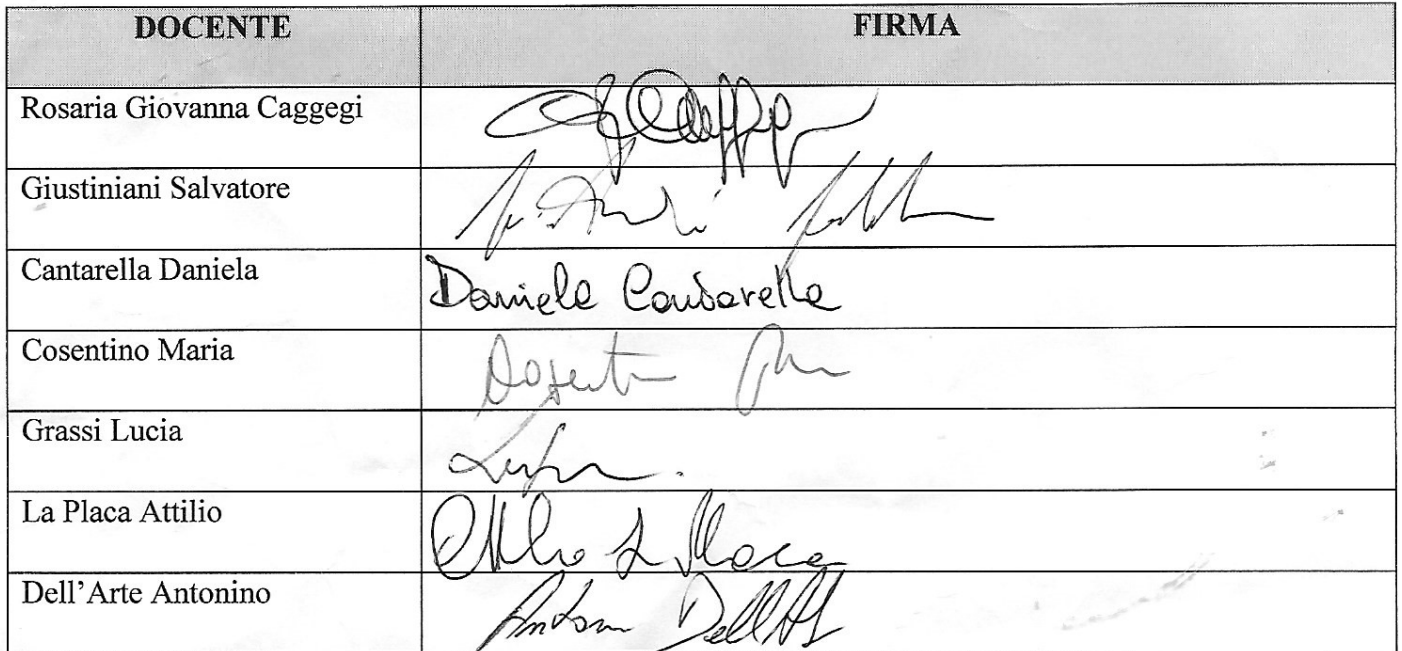 DOCENTE FIRMA
Rosaria Giovanna Caggegi
Giustiniani Salvatore
Cantarella Daniela Daniela Cantarella
Cosentino Maria
Grassi Lucia
La Placa Attilio Attilio La Placa
Dell'Arte Antonino Antonino Dell'Arte